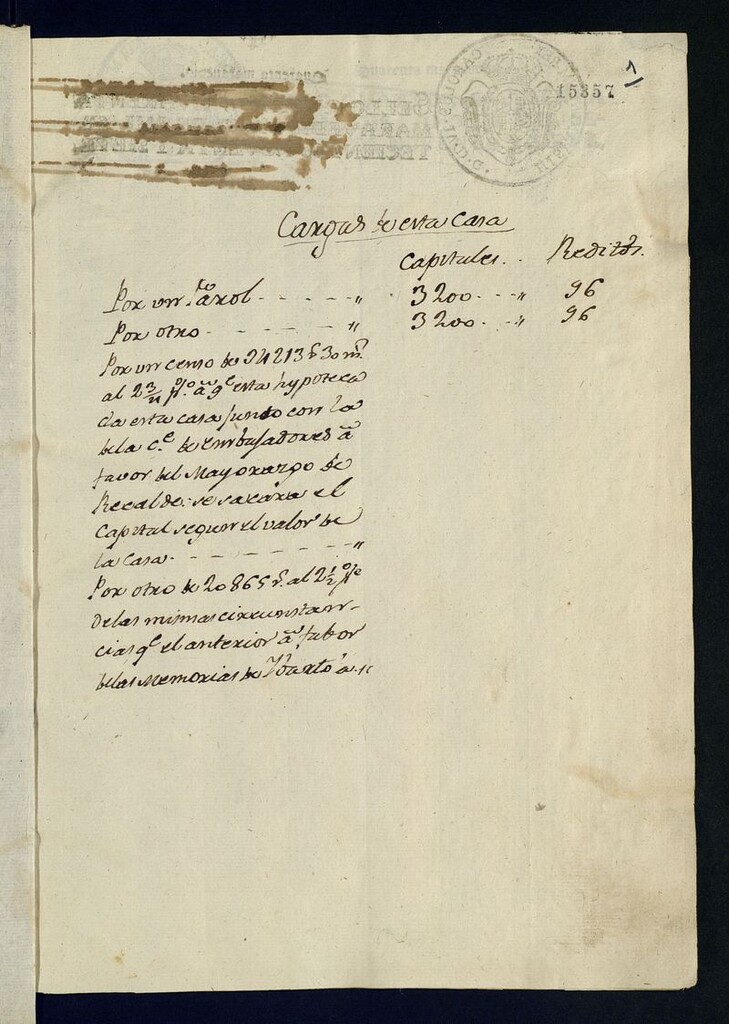 1
15357
CAROLUS III D.G. HISP
Cargas de esta Casa
Capitales. . Reditos.
Por un farol - - - - - " 3200. - " 96
Por otro - - - - - " 3200. - " 96
Por un censo de 24213 rs 30 ms.
al 2 3/4 p%. a qe esta hypoteca
da esta casa junto con la
de la ce. de embajadores a
favor del Mayorazgo de
Recalde: se sacara el
Capital segun el valor de
la Casa. - - - - - "
Por otro de 20865 rs. al 2 1/2 p%
de las mismas circunstan-
cias qe el anterior a fabor
de las Memorias de